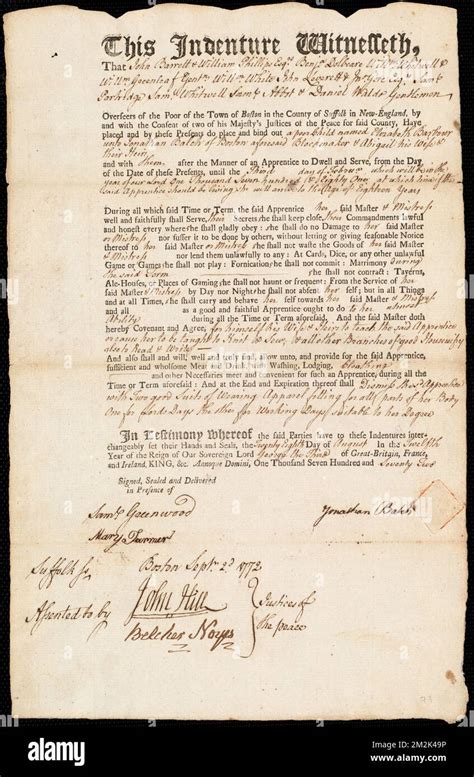 This Indenture Witnesseth,
That John Barrett & William Phillips Esqrs Benja Dolbeare
Willm Greenleaf Gentn Willm White John Leverett &
Partridge Saml Whitwell Saml Abbot & Daniel Waldo Gentlemen
Overseers of the Poor of the Town of Boston in the County of Suffolk in New-England, by
and with the Consent of two of his Majesty's Justices of the Peace for said County, Have
placed and by these Presents do place and bind out a poor child named Elizabeth Barbour
unto Jonathan Balch of Boston aforesaid Blockmaker & Abigail his Wife &
their Heirs
and with Them after the Manner of an Apprentice to Dwell and Serve, from the Day
of the Date of these Presents, until the Third day of which will be in the
Year of our Lord One thousand seven hundred & Eighty One at which time the
said Apprentice should be living she will arrive to the Age of Eighteen Years
During all which said Time or Term, the said Apprentice her said Master & Mistress
well and faithfully shall Serve, Their Secrets she shall keep close, Their Commandments lawful
and honest every where she shall gladly obey: she shall do no Damage to her said Master
or Mistress nor suffer it to be done by others, without letting or giving seasonable Notice
thereof to her said Master or Mistress she shall not waste the Goods of her said Master
& Mistress nor lend them unlawfully to any: At Cards, Dice, or any other unlawful
Game or Games she shall not play: Fornication she shall not commit: Matrimony during
the said Term she shall not contract: Taverns,
Ale-Houses, or Places of Gaming she shall not haunt or frequent: From the Service of her
said Master & Mistress by Day nor Night she shall not absent her self; but in all Things
and at all Times, she shall carry and behave her self towards her said Master & Mistress
and all as a good and faithful Apprentice ought to do to her utmost
Ability during all the Time or Term aforesaid. And the said Master doth
hereby Covenant and Agree, for himself his Wife & Heirs to teach the said Apprentice
or cause her to be taught to Knit & Sew, & all other Branches of good Housewifry
also to Read & Write
And also shall and will, well and truly find, allow unto, and provide for the said Apprentice,
sufficient and wholesome Meat and Drink, with Washing, Lodging, Cloathing
and other Necessaries meet and convenient for such an Apprentice, during all the
Time or Term aforesaid: And at the End and Expiration thereof shall Dismiss the sd Apprentice
with Two good Suits of Wearing Apparel fitting for all parts of her Body
One for Lords Days the other for Working Days suitable to her Degree
In Testimony whereof the said Parties have to these Indentures inter-
changeably set their Hands and Seals, the Twenty Eighth Day of August in the Twelfth
Year of the Reign of our Sovereign Lord George the Third of Great-Britain, France,
and Ireland, KING, &c. Annoque Domini, One Thousand Seven Hundred and Seventy Two
Signed, Sealed and Delivered
in Presence of
Saml Greenwood
Jonathan Balch
Mary Turner
Suffolk ss. Boston Septr 2d 1772
Assented to by John Hill Justices of
Belcher Noyes the peace
alamy
Image ID: 2M2K49P
www.alamy.com